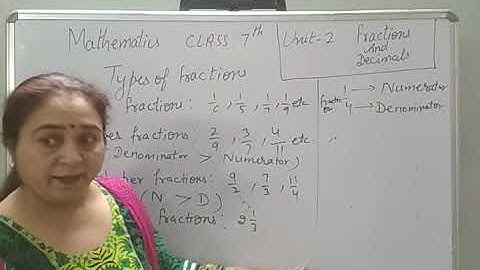 Mathematics CLASS 7th
Unit-2 Fractions
And
Decimals
Types of fractions
fractions: 1/6, 1/5, 1/7, 1/9 etc
fractions: 2/9, 3/7, 4/11 etc
Denominator > Numerator)
fractions: 9/2, 7/3, 11/4
(N > D)
fractions: 2 1/3
1 → Numerator
4 → Denominator